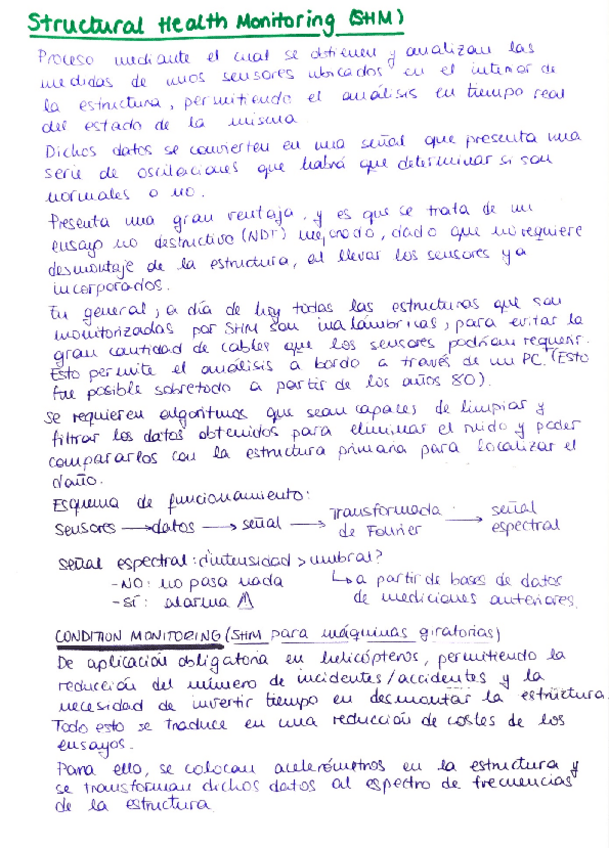 Structural Health Monitoring (SHM)
Proceso mediante el cual se obtienen y analizan las
medidas de unos sensores ubicados en el interior de
la estructura, permitiendo el análisis en tiempo real
del estado de la misma
Dichos datos se convierten en una señal que presenta una
serie de oscilaciones que habrá que determinar si son
normales o no.
Presenta una gran ventaja, y es que se trata de un
ensayo no destructivo (NDT) mejorado, dado que no requiere
desmontaje de la estructura, al llevar los sensores ya
incorporados.
En general, a día de hoy todas las estructuras que son
monitorizadas por SHM son inalámbricas, para evitar la
gran cantidad de cables que los sensores podrían requerir.
Esto permite el análisis a bordo a través de un PC. (Esto
fue posible sobretodo a partir de los años 80).
Se requieren algoritmos que sean capaces de limpiar y
filtrar los datos obtenidos para eliminar el ruido y poder
compararlos con la estructura primaria para localizar el
daño.
Esquema de funcionamiento:
sensores → datos → señal → Transformada de Fourier → señal espectral
señal espectral: ¿intensidad > umbral?
- NO: no pasa nada ↳ a partir de bases de datos
- SÍ: alarma ⚠ de mediciones anteriores.
CONDITION MONITORING (SHM para máquinas giratorias)
De aplicación obligatoria en helicópteros, permitiendo la
reducción del número de incidentes/accidentes y la
necesidad de invertir tiempo en desmontar la estructura.
Todo esto se traduce en una reducción de costes de los
ensayos.
Para ello, se colocan acelerómetros en la estructura y
se transforman dichos datos al espectro de frecuencias
de la estructura